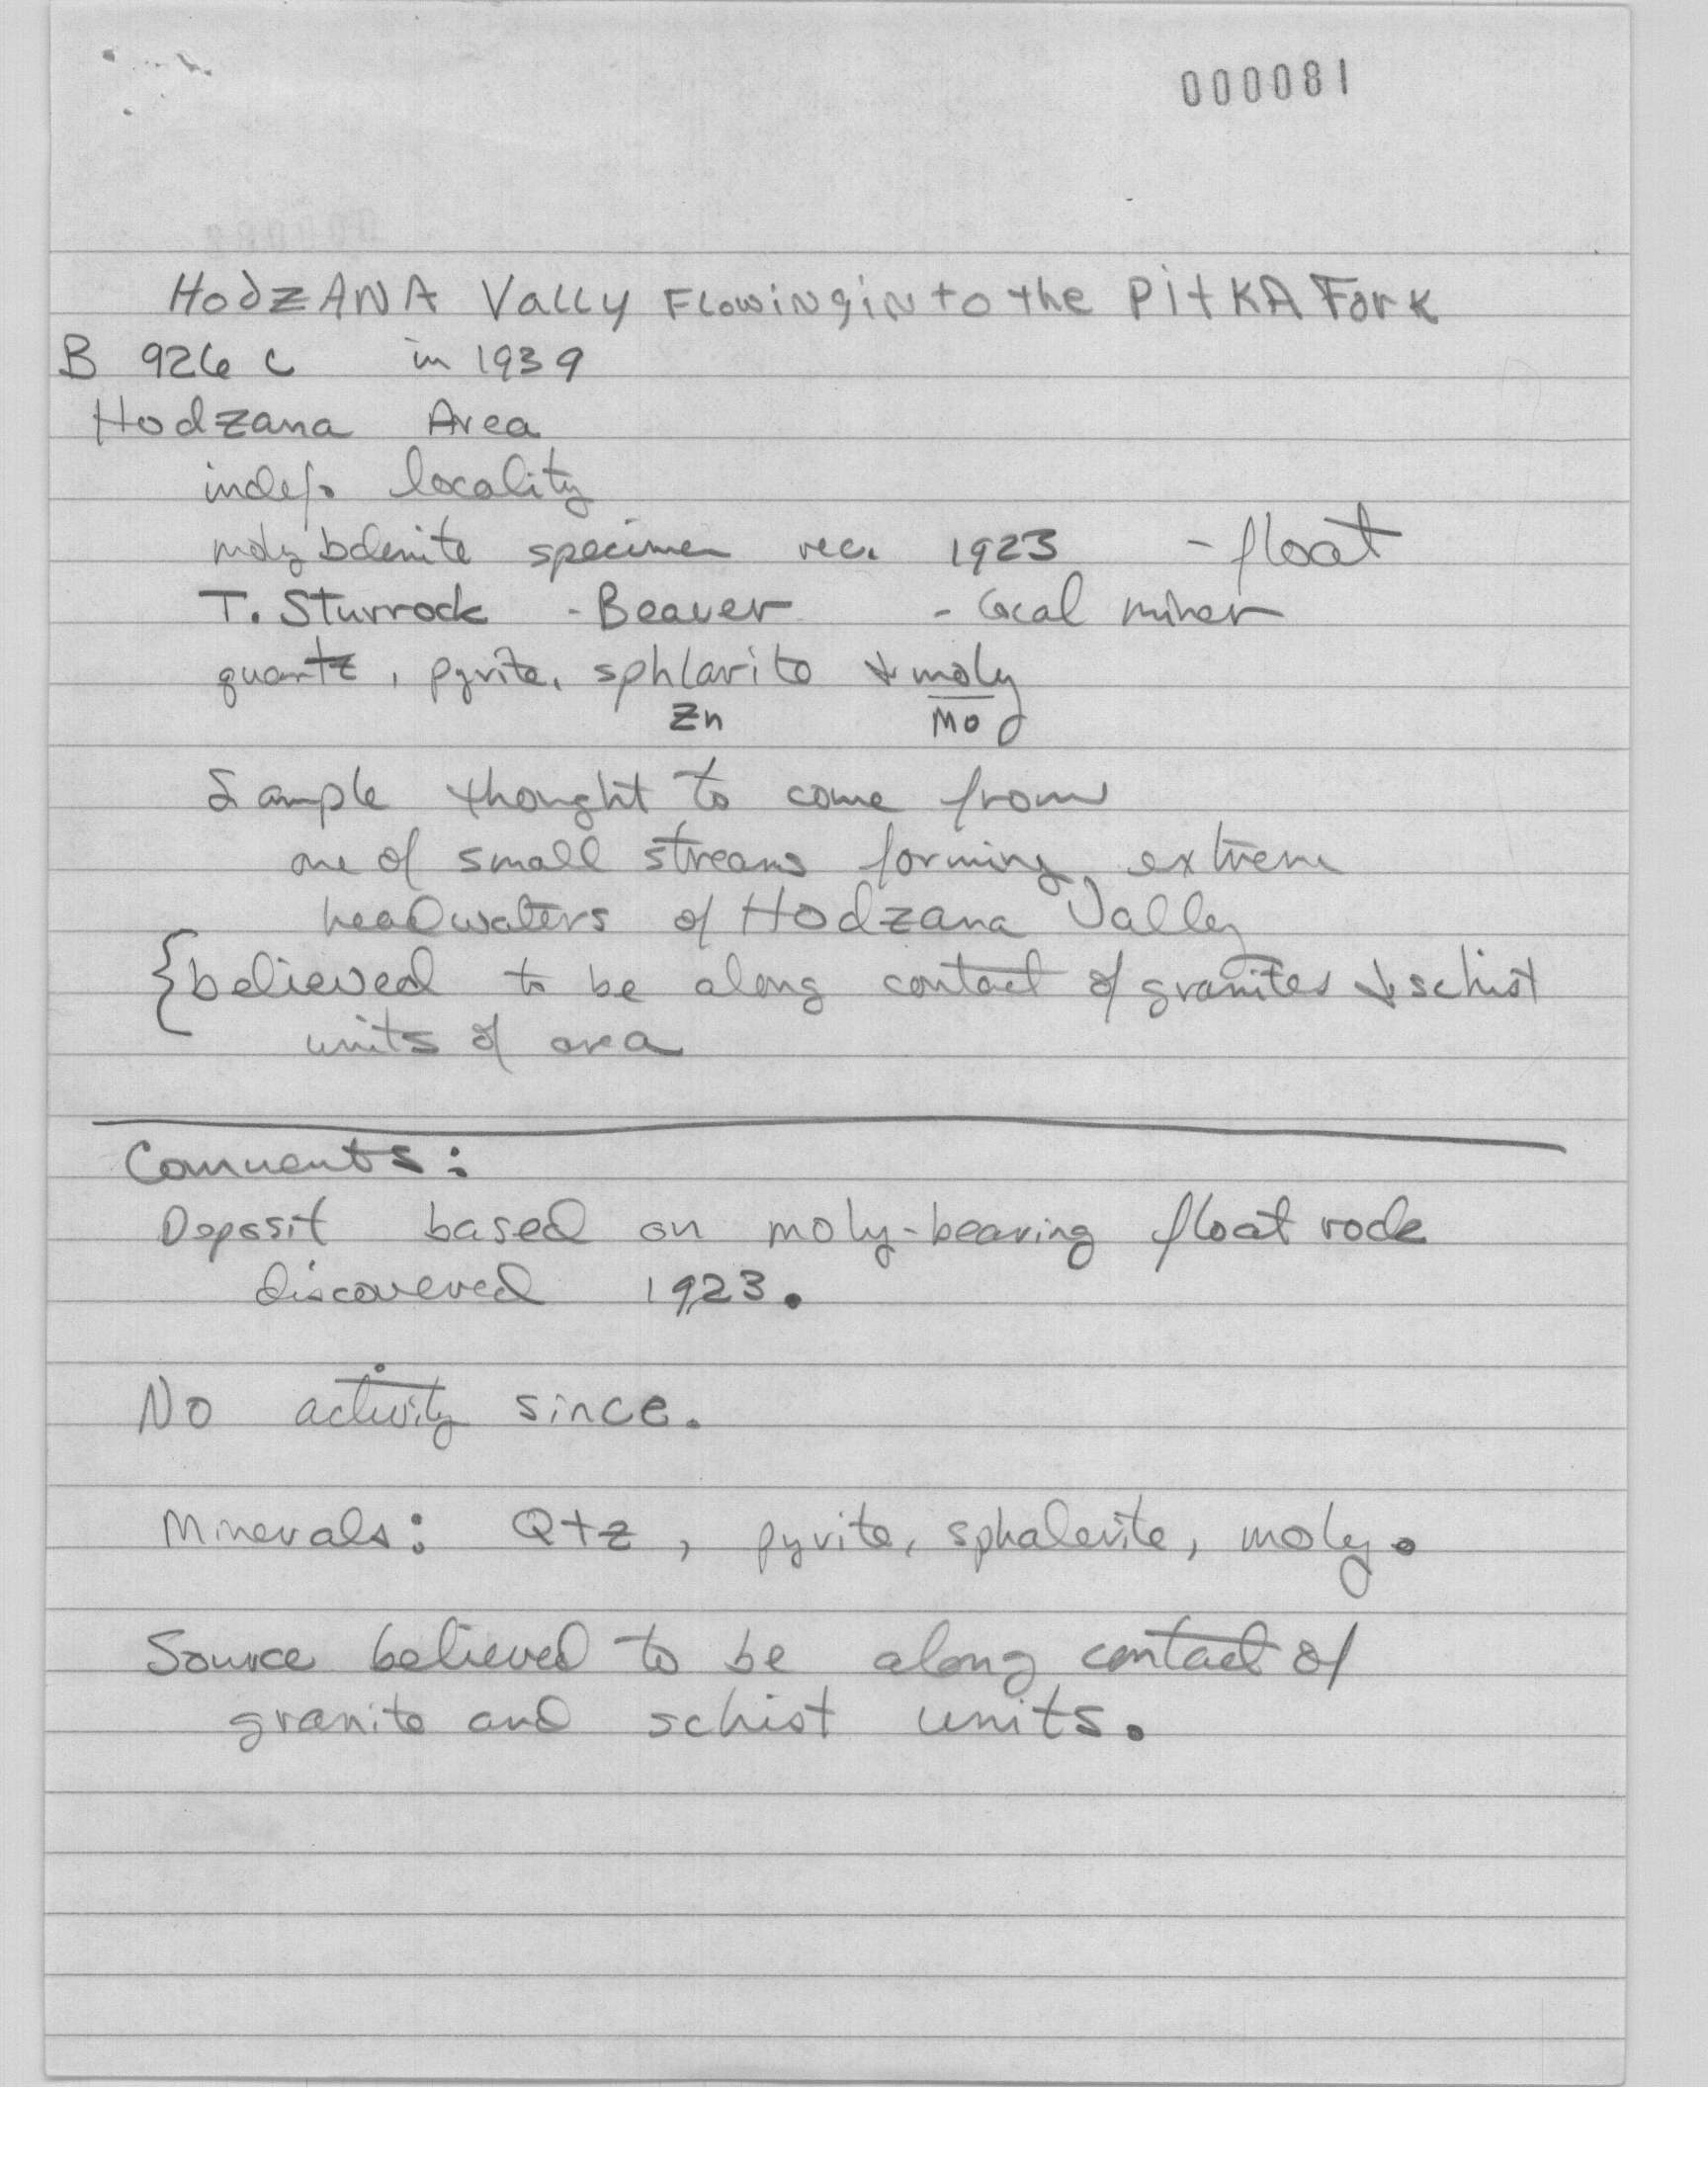 000081
HodzANA Vally Flowing into the PitKA Fork
B 926 C in 1939
Hodzana Area
indef. locality
molybdenite specimen rec. 1923 - float
T. Sturrock - Beaver - local miner
quartz, pyrite, sphlarite & moly
Zn Mo
Sample thought to come from
one of small streams forming extreme
headwaters of Hodzana Valley
{believed to be along contact of granites & schist
units of area
Comments:
Deposit based on moly-bearing float rock
discovered 1923.
No activity since.
Minerals: Qtz, pyrite, sphalerite, moly.
Source believed to be along contact of
granite and schist units.